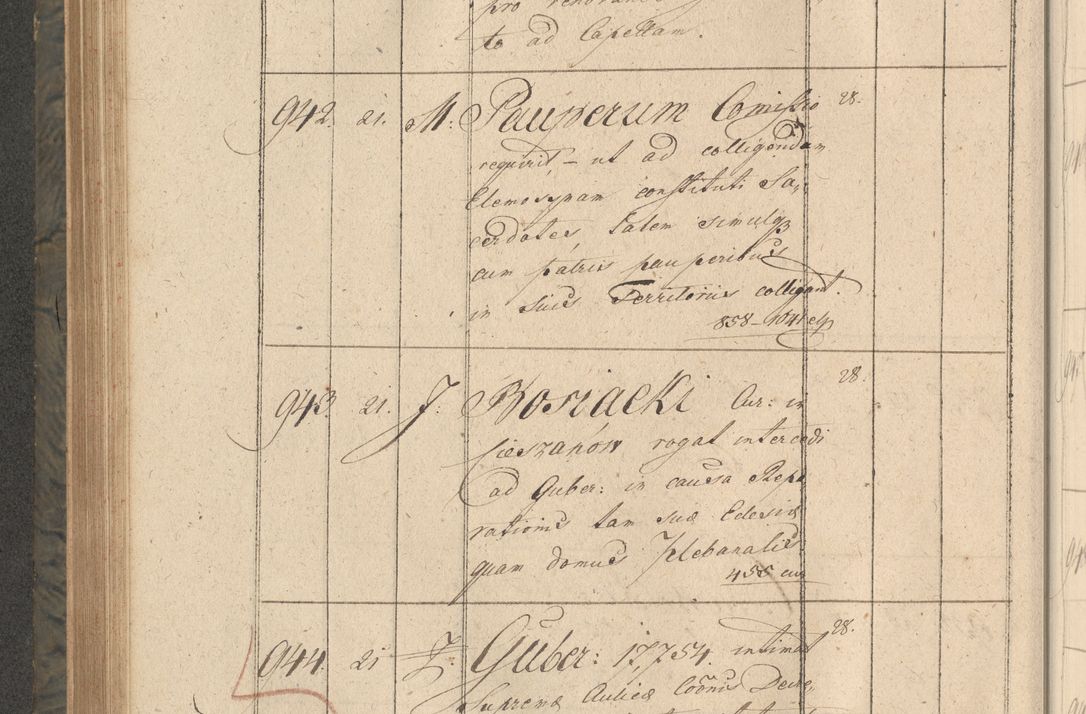 to ad Capellam.
942. 21. M. Pauperum Comissio 28.
requirit, – ut ad colligendam
Elemosynam constituti Sa,
cerdotes Salem simulq
cum patriis pauperibus
in suis Territoriis colligant.
858 – 1041
943. 21. J: Rosiacki Cur: in 28.
Cieszanow rogat intercedi
ad Guber: in causa Repa
rationis tam suæ Eclesiæ
quam domus Plebanalis
455
944. 21 Guber: 17,754. intimat 28.
Supremæ Aulicæ Decre,